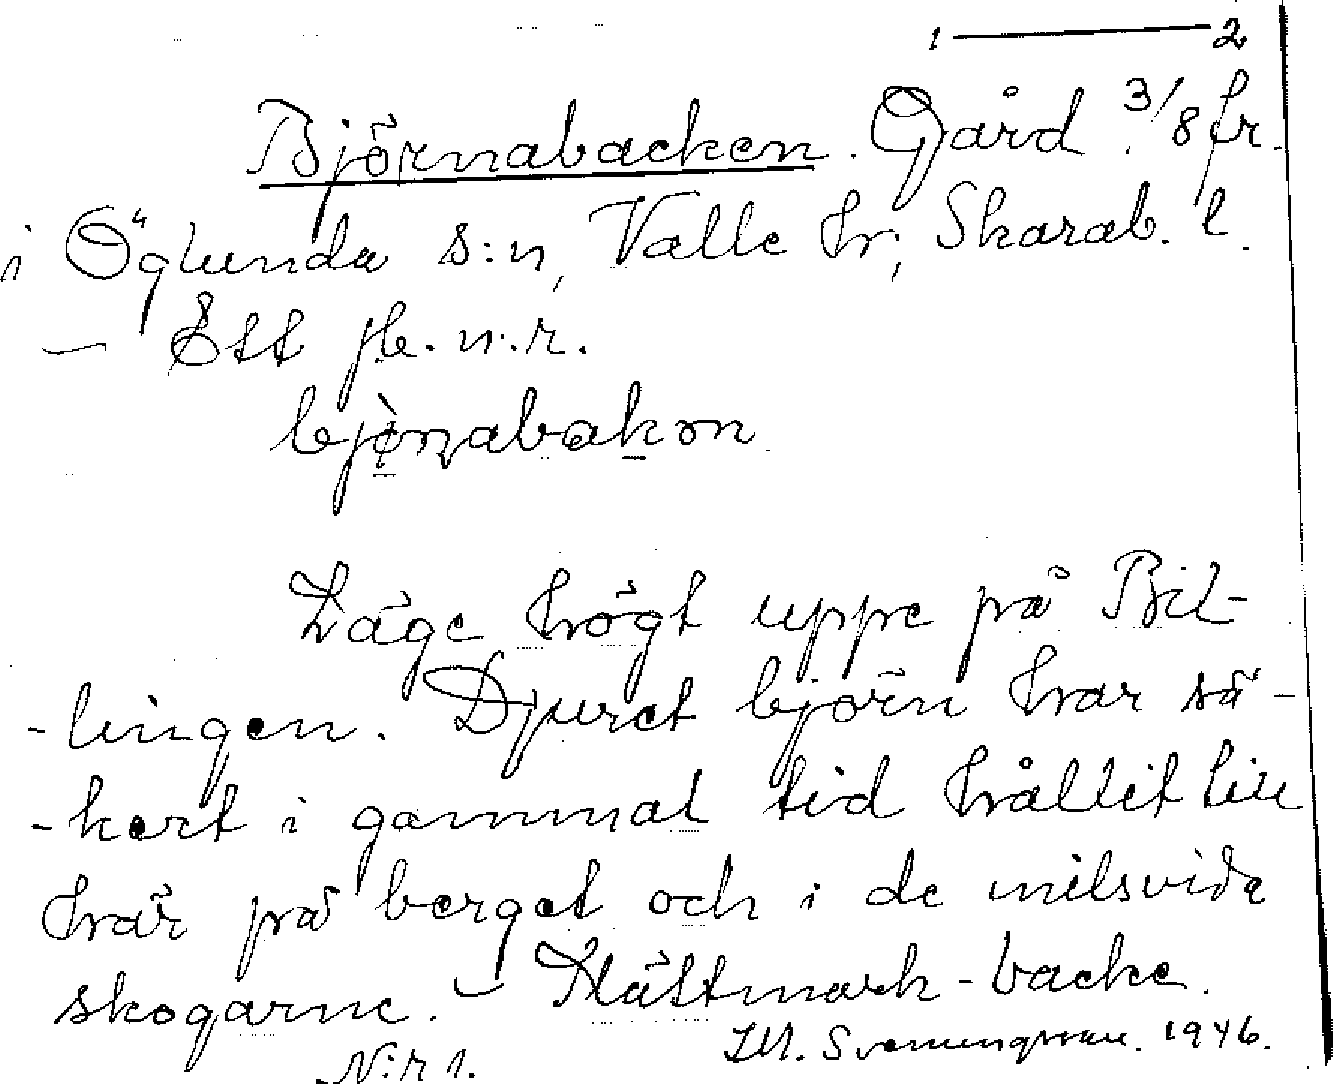 1 — 2
Björnabacken. Gård 3/8 fr.
i Öglunda s:n, Valle hr, Skarab. l.
— Ett jb. n:r.
bjònabakən
Läge högt uppe på Bil-
-lingen. Djuret björn har sä-
-kert i gammal tid hållit till
här på berget och i de milsvida
skogarne. — Slättmark-backe.
N:r 1. Svenungsson. 1946.